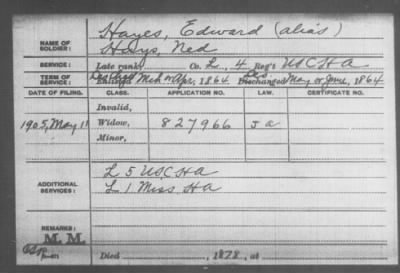 NAME OF SOLDIER: Hayes, Edward (alias)
Hays, Ned
SERVICE: Late rank, Co. L, 4 Reg't USCHA
TERM OF SERVICE: Enlisted Mch or Apr, 1864 Discharged Des May or June, 1864
DATE OF FILING. CLASS. APPLICATION NO. LAW. CERTIFICATE NO.
Invalid,
1905, May 11 Widow, 827966 Ja
Minor,
ADDITIONAL SERVICES: L 5 USCHA
L 1 Miss. HA
REMARKS:
M. M.
Died , 1878, at